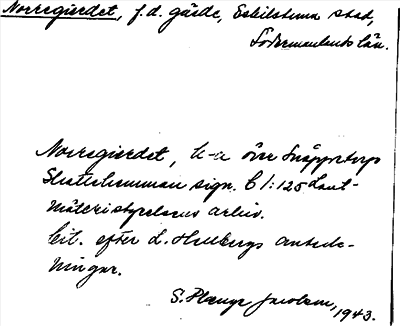 Norregierdet, f.d. gärde, Eskilstuna stad,
Södermanlands län.
Norregierdet, k-a över Snäppstorps
Skattehemman sign. C 1:125 Lant-
mäteristyrelsens arkiv.
Cit. efter L. Hellbergs anteck-
ningar.
S. Jacobson, 1943.